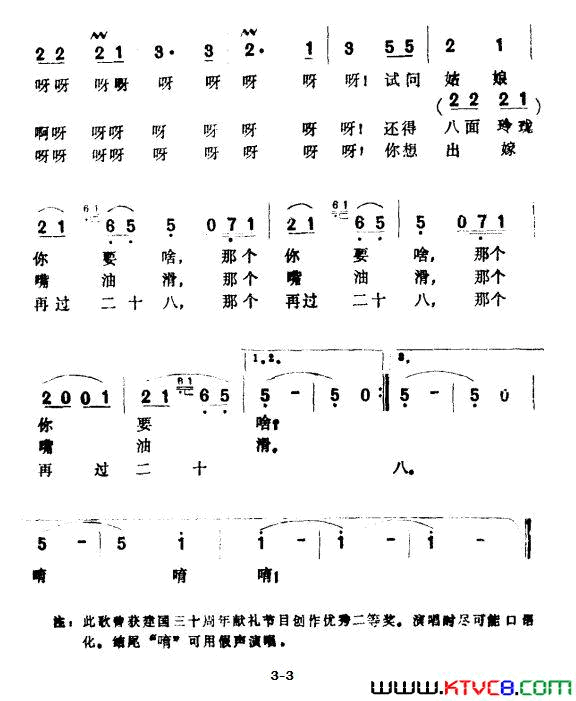 2 2 2 1 3· 3 2· 1 | 3 5 5 | 2 1
呀呀 呀呀 呀 呀 呀 呀 呀! 试问 姑 娘
(2 2 2 1)
啊呀 呀呀 呀 呀 呀 呀 呀! 还得 八面 玲珑
呀呀 呀呀 呀 呀 呀 呀 呀! 你想 出 嫁
6 1 6 1
2 1 6 5 5 0 7 1 | 2 1 6 5 | 5 0 7 1
你 要 啥, 那个 你 要 啥, 那个
嘴 油 滑, 那个 嘴 油 滑, 那个
再过 二十 八, 那个 再过 二十 八, 那个
1.2. 3.
6 1
2 0 0 1 | 2 1 6 5 | 5 - | 5 0 :| 5 - | 5 0
你 要 啥!
嘴 油 滑。
再 过 二 十 八。
5 - | 5 i | i - | i - | i
唷 唷 唷!
注: 此歌曾获建国三十周年献礼节目创作优秀二等奖。演唱时尽可能口语
化。结尾“唷”可用假声演唱。
3-3
WWW.KTVC8.COM